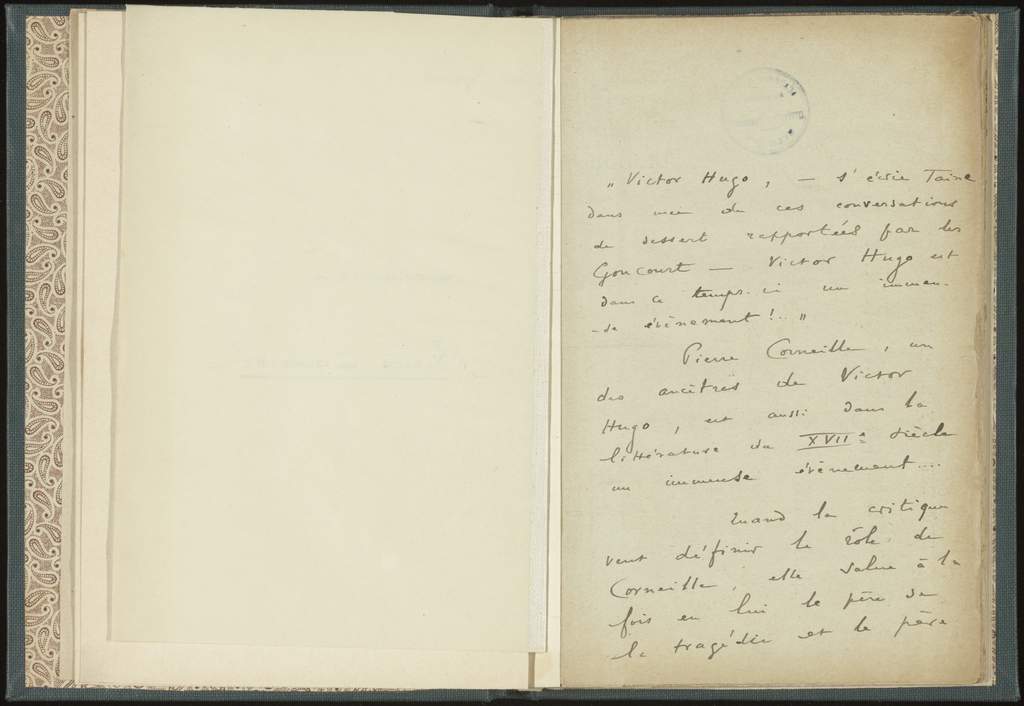 „ Victor Hugo, — s'écrie Taine
dans une de ces conversations
de dessert rapportées par les
Goncourt — Victor Hugo est
dans ce temps-ci un immen-
-se évènement !.. "
Pierre Corneille, un
des ancêtres de Victor
Hugo, est aussi dans la
littérature du XVIIe siècle
un immense évènement....
Quand la critique
veut définir le rôle de
Corneille, elle salue à la
fois en lui le père de
la tragédie et le père